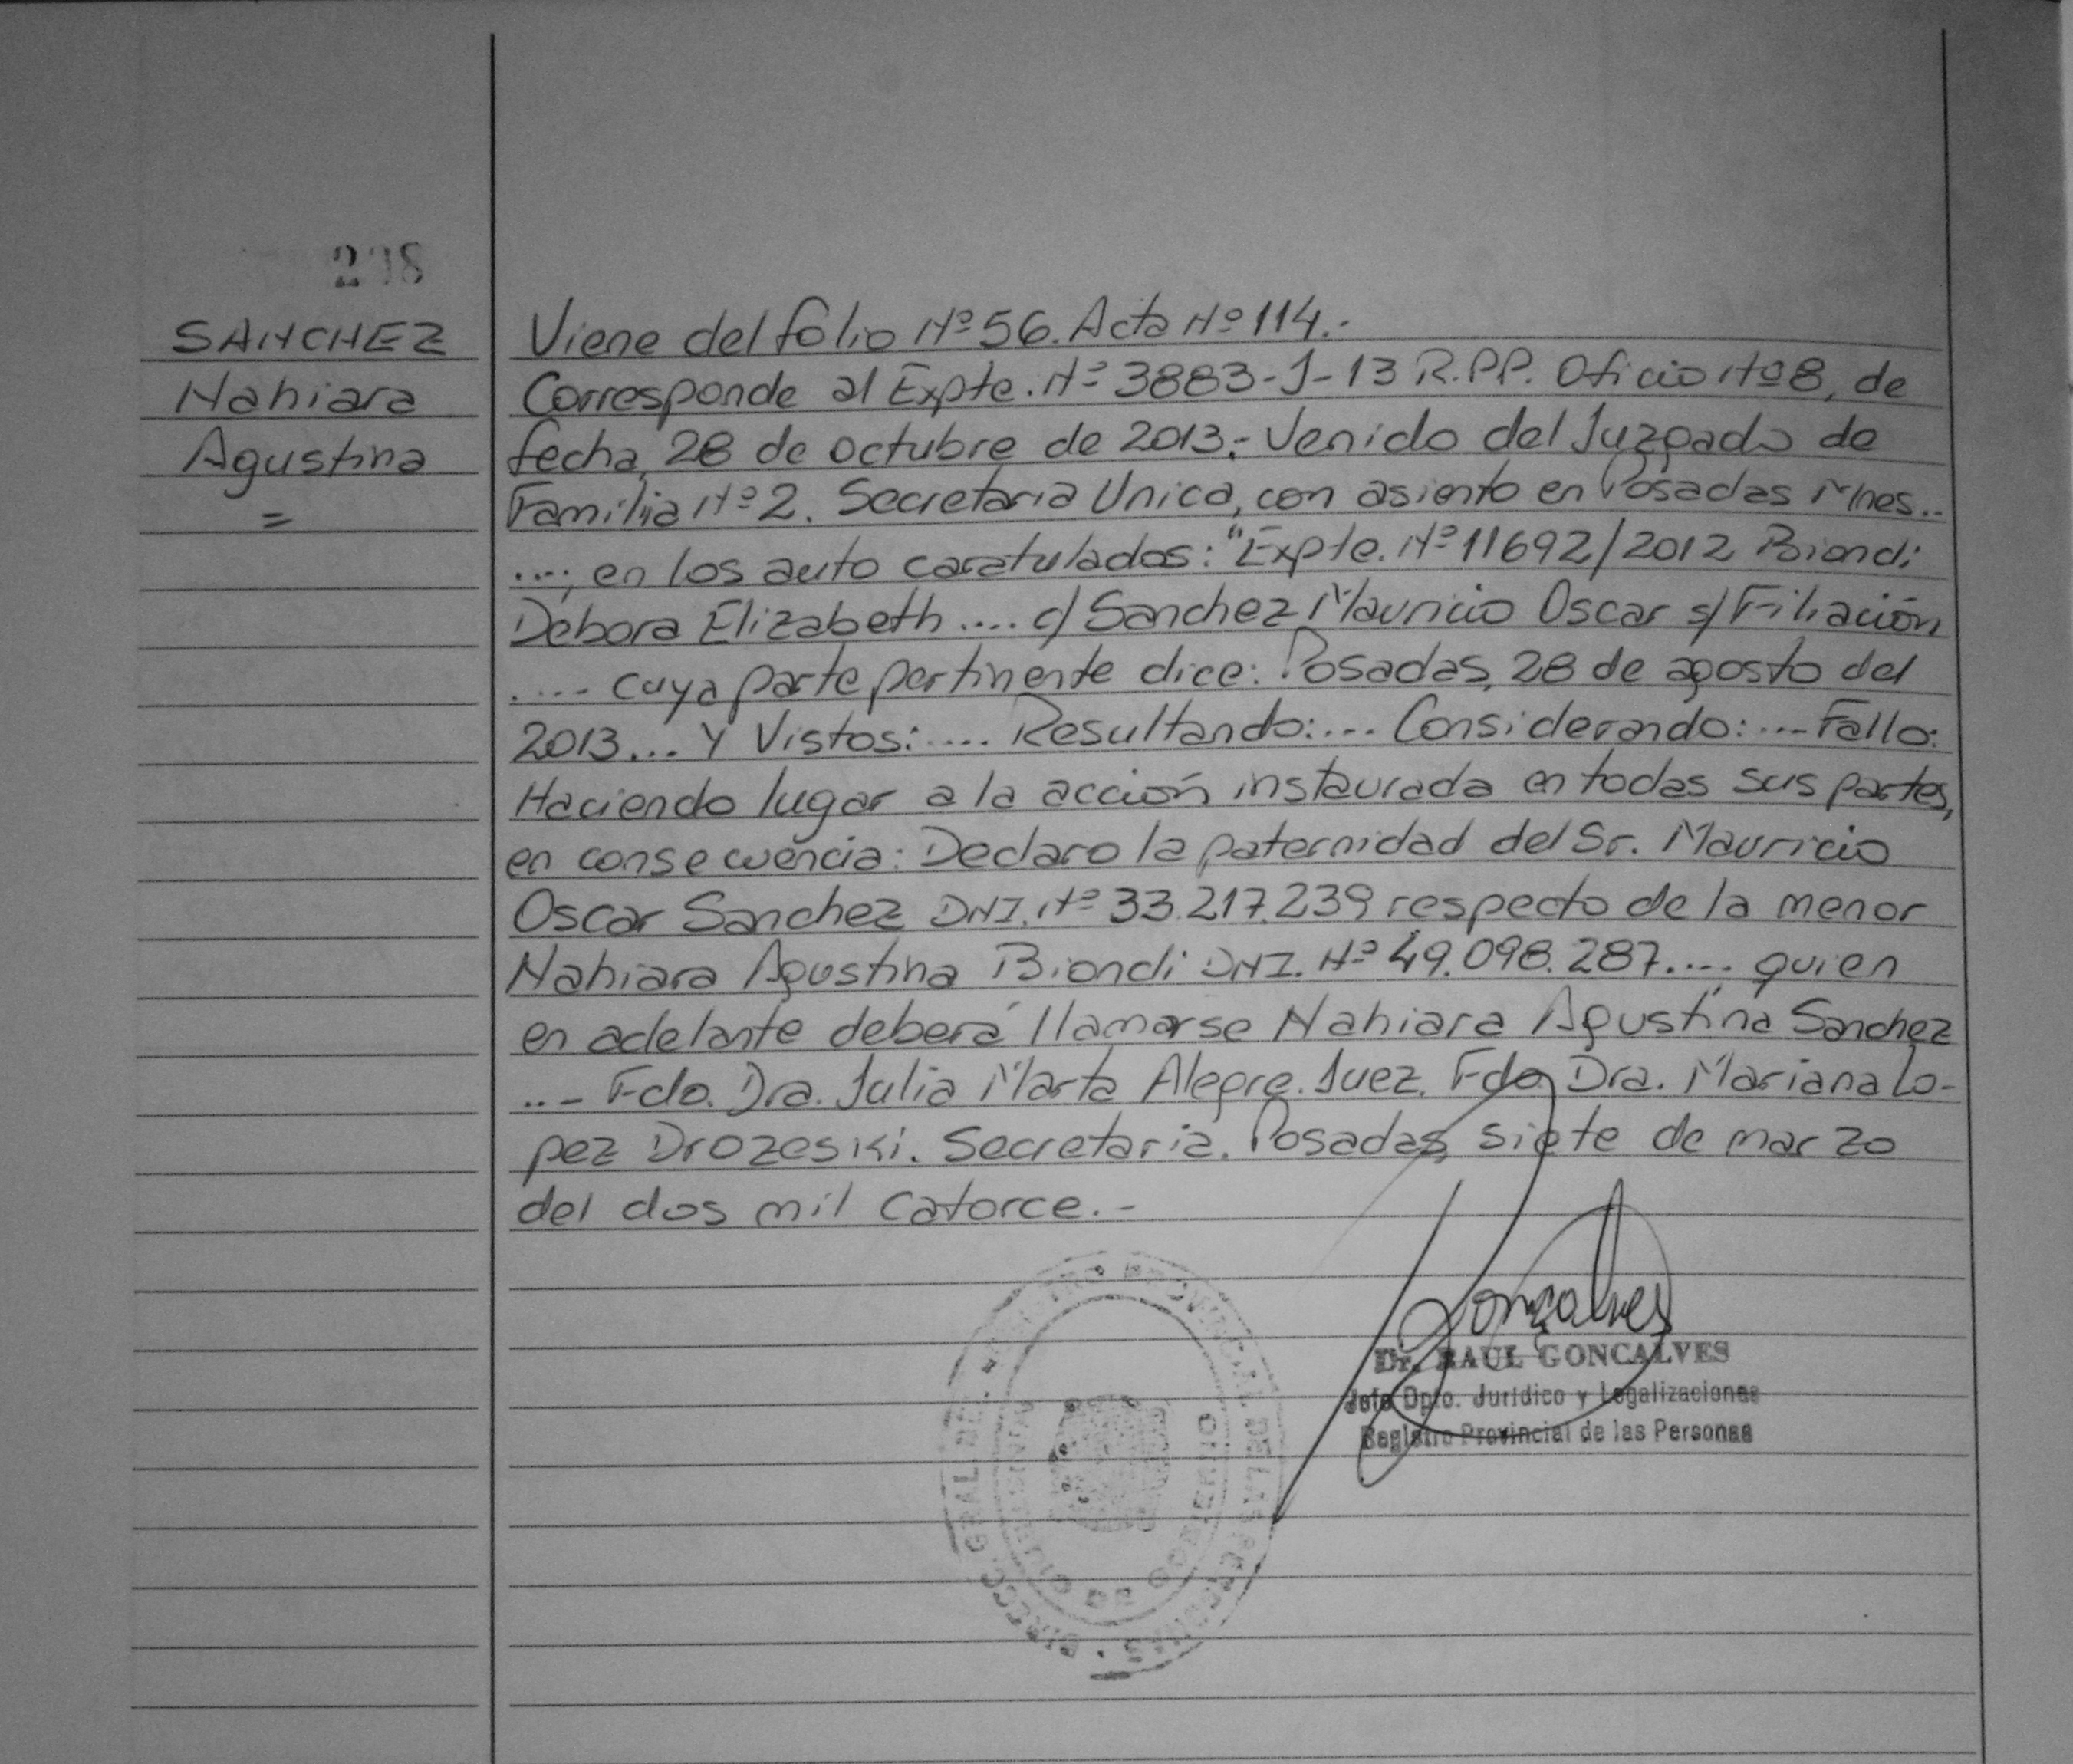 298
SANCHEZ
Nahiara
Agustina
=
Viene del folio Nº 56. Acta Nº 114.-
Corresponde al Expte. Nº 3883-J-13 R.PP. Oficio Nº 8, de
fecha, 28 de octubre de 2013.- Venido del Juzgado de
Familia Nº 2. Secretaria Unica, con asiento en Posadas Mnes..
....; en los auto caratulados: "Expte. Nº 11692/2012 Biondi
Débora Elizabeth .... c/ Sanchez Mauricio Oscar s/ Filiación
..... cuya parte pertinente dice: Posadas, 28 de agosto del
2013... Y Vistos:.... Resultando:.... Considerando:.... Fallo:
Haciendo lugar a la acción instaurada en todas sus partes,
en consecuencia: Declaro la paternidad del Sr. Mauricio
Oscar Sanchez DNI. Nº 33.217.239 respecto de la menor
Nahiara Agustina Biondi DNI. Nº 49.098.287.... quien
en adelante deberá llamarse Nahiara Agustina Sanchez
..- Fdo. Dra. Julia Marta Alegre. Juez. Fdo. Dra. Mariana Lo-
pez Drozeski. Secretaria. Posadas, siete de marzo
del dos mil catorce.-
Gonçalves
Dr. RAUL GONCALVES
Jefe Dpto. Jurídico y Legalizaciones
Registro Provincial de las Personas
DIRECC. GRAL. DEL REGISTRO PROVINCIAL DE LAS PERSONAS
MINISTERIO DE GOBIERNO